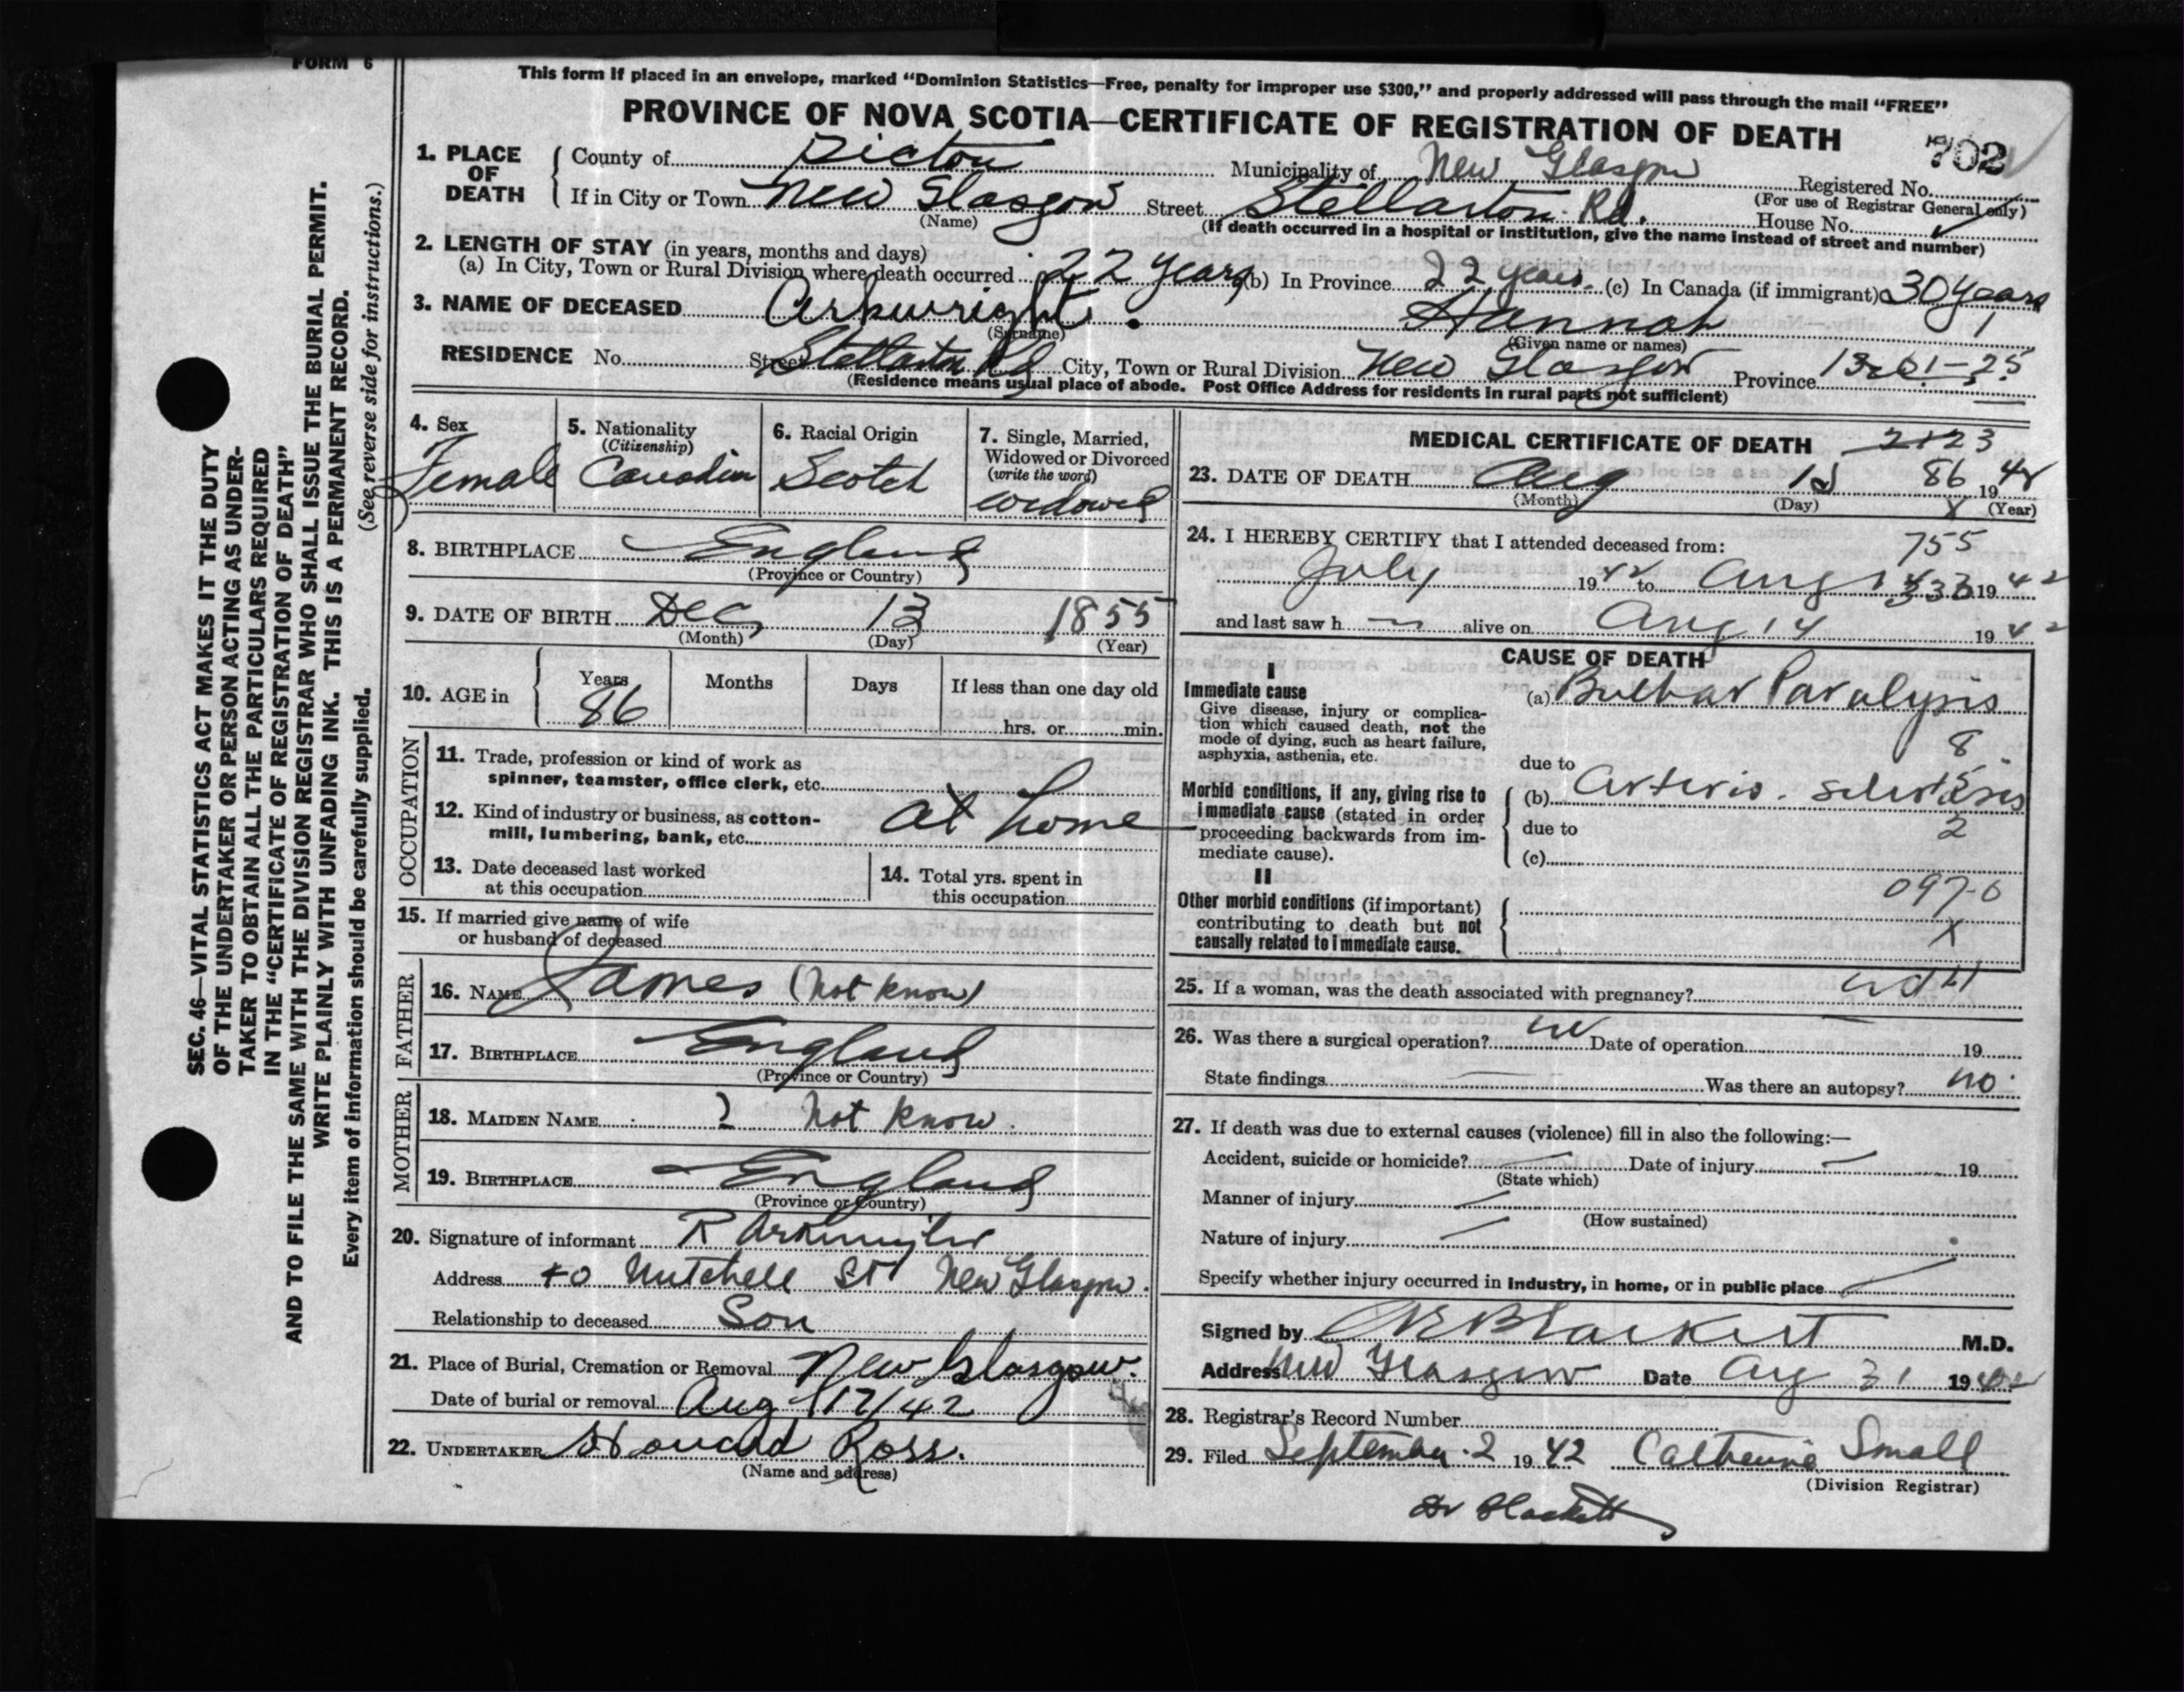 FORM 6
This form if placed in an envelope, marked "Dominion Statistics—Free, penalty for improper use $300," and properly addressed will pass through the mail "FREE"
PROVINCE OF NOVA SCOTIA—CERTIFICATE OF REGISTRATION OF DEATH
702
1. PLACE OF DEATH
County of Pictou Municipality of New Glasgow Registered No.
(For use of Registrar General only)
If in City or Town New Glasgow Street Stellarton Rd. House No.
(Name) (If death occurred in a hospital or institution, give the name instead of street and number)
2. LENGTH OF STAY (in years, months and days)
(a) In City, Town or Rural Division where death occurred 22 years (b) In Province 22 years. (c) In Canada (if immigrant) 30 years
3. NAME OF DECEASED Arkwright. Hannah 1
(Surname) (Given name or names)
RESIDENCE No. Street Stellarton Rd City, Town or Rural Division New Glasgow Province
(Residence means usual place of abode. Post Office Address for residents in rural parts not sufficient)
4. Sex Female
5. Nationality (Citizenship) Canadian
6. Racial Origin Scotch
7. Single, Married, Widowed or Divorced (write the word) widowed
8. BIRTHPLACE England
(Province or Country)
9. DATE OF BIRTH Dec 13 1855
(Month) (Day) (Year)
10. AGE in Years 86 Months Days If less than one day old
hrs. or min.
OCCUPATION
11. Trade, profession or kind of work as
spinner, teamster, office clerk, etc.
12. Kind of industry or business, as cotton-
mill, lumbering, bank, etc. at home
13. Date deceased last worked
at this occupation
14. Total yrs. spent in
this occupation
15. If married give name of wife
or husband of deceased
FATHER
16. NAME James (not know)
17. BIRTHPLACE England
(Province or Country)
MOTHER
18. MAIDEN NAME ? Not know.
19. BIRTHPLACE England
(Province or Country)
20. Signature of informant R Arkwright
Address 40 Mitchell St New Glasgow.
Relationship to deceased Son
21. Place of Burial, Cremation or Removal New Glasgow.
Date of burial or removal Aug 17/42
22. UNDERTAKER Howard Ross.
(Name and address)
MEDICAL CERTIFICATE OF DEATH 2123
23. DATE OF DEATH Aug 86 19 42
(Month) (Day) X (Year)
24. I HEREBY CERTIFY that I attended deceased from: 755
July 19 42 to Aug 19 42
and last saw h alive on Aug 14 19 42
CAUSE OF DEATH
I
Immediate cause
Give disease, injury or complica-
tion which caused death, not the
mode of dying, such as heart failure,
asphyxia, asthenia, etc.
(a) Bulbar Paralysis
8
due to
Morbid conditions, if any, giving rise to
immediate cause (stated in order
proceeding backwards from im-
mediate cause).
(b) Arterio. sclerosis
due to 2
(c)
II
Other morbid conditions (if important)
contributing to death but not
causally related to immediate cause.
097-0
X
25. If a woman, was the death associated with pregnancy?
26. Was there a surgical operation? no Date of operation 19
State findings Was there an autopsy? no.
27. If death was due to external causes (violence) fill in also the following:—
Accident, suicide or homicide? Date of injury 19
(State which)
Manner of injury
(How sustained)
Nature of injury
Specify whether injury occurred in Industry, in home, or in public place
Signed by Blackett M.D.
Address New Glasgow Date Aug 31 19 42
28. Registrar's Record Number
29. Filed September 2 19 42 Catherine Small
(Division Registrar)
Dr Blackett
SEC. 46—VITAL STATISTICS ACT MAKES IT THE DUTY
OF THE UNDERTAKER OR PERSON ACTING AS UNDER-
TAKER TO OBTAIN ALL THE PARTICULARS REQUIRED
IN THE "CERTIFICATE OF REGISTRATION OF DEATH"
AND TO FILE THE SAME WITH THE DIVISION REGISTRAR WHO SHALL ISSUE THE BURIAL PERMIT.
WRITE PLAINLY WITH UNFADING INK. THIS IS A PERMANENT RECORD.
Every item of information should be carefully supplied. (See reverse side for instructions.)